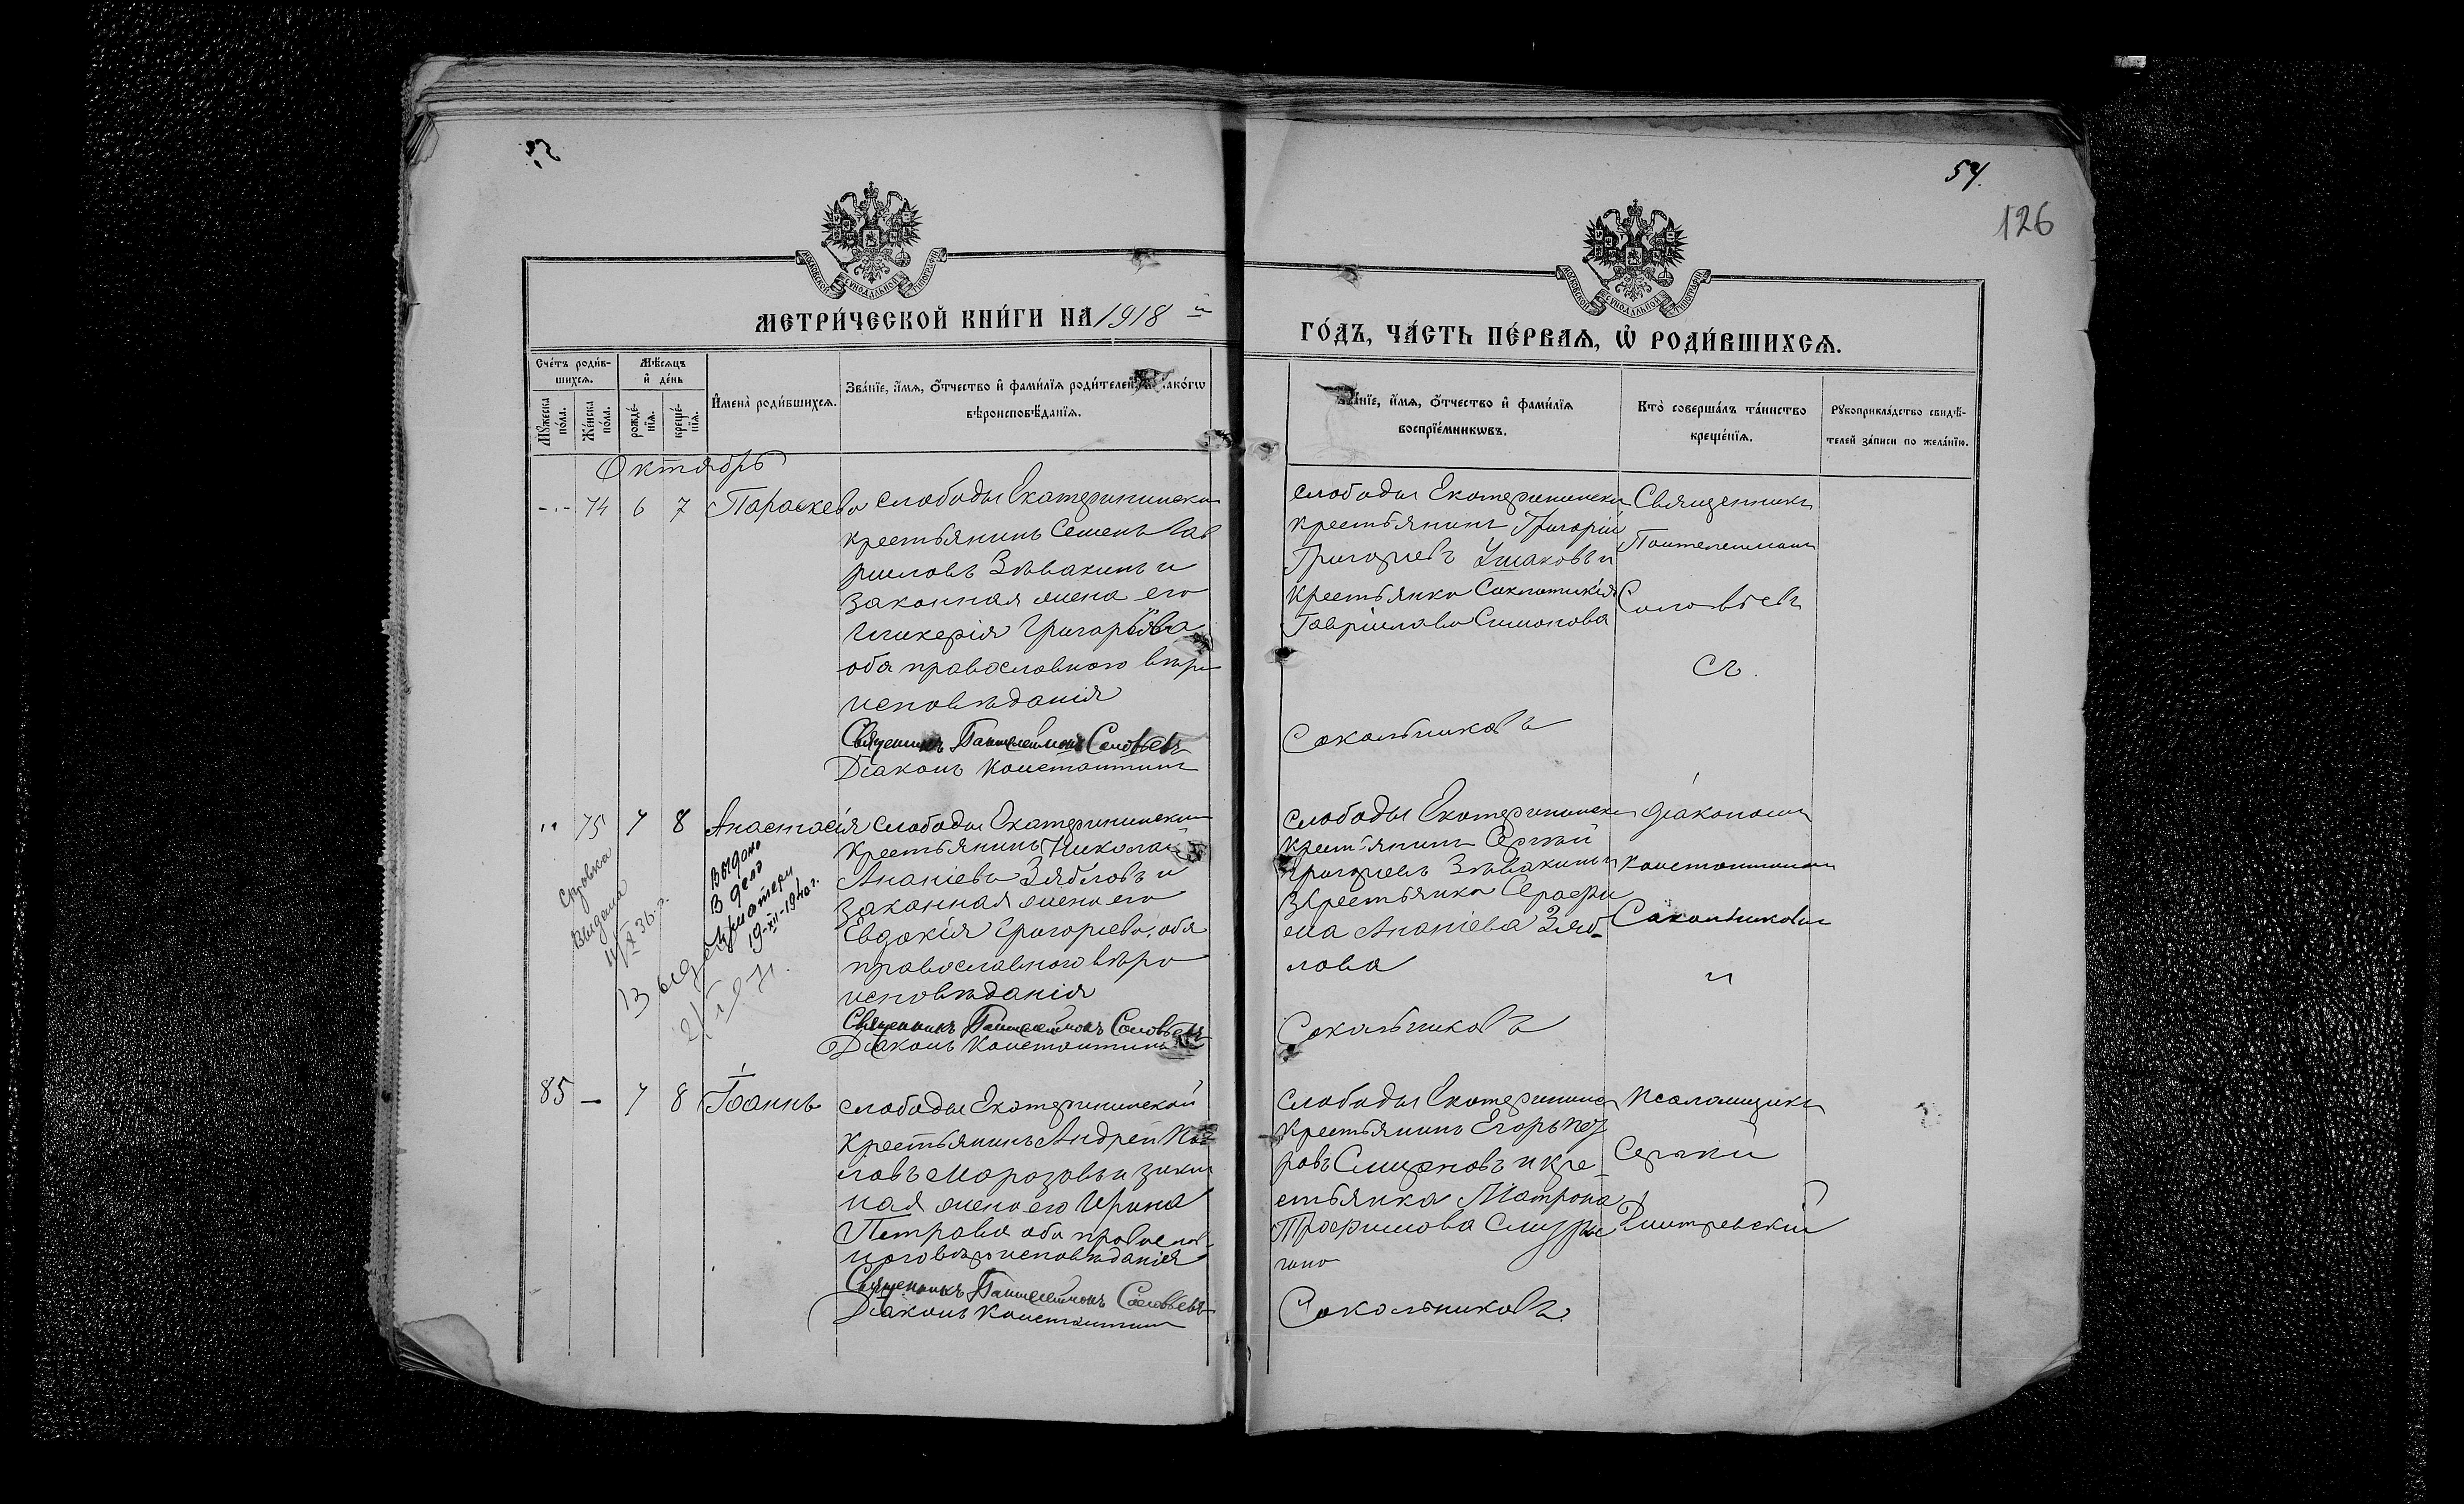 54.
126
МОСКОВСКОЙ СѴНОДАЛЬНОЙ ТИПОГРАФІИ
МОСКОВСКОЙ СѴНОДАЛЬНОЙ ТИПОГРАФІИ
МЕТРИ́ЧЕСКОЙ КНИ́ГИ НА 1918 й
ГО́ДЪ, ЧА́СТЬ ПЕ́РВАѦ, Ѡ҆ РОДИ́ВШИХСѦ.
Сче́тъ роди́в-
шихсѧ.
Мꙋжеска по́ла.
Же́нска по́ла.
Мѣ́сѧцъ
и҆ де́нь
рожде́-
нїѧ.
креще́-
нїѧ.
И҆мена̀ роди́вшихсѧ.
Зва́нїе, и҆́мѧ, ѻ҆́тчество и҆ фами́лїѧ роди́телей, и҆ како́гѡ
вѣроисповѣ́данїѧ.
Зва́нїе, и҆́мѧ, ѻ҆́тчество и҆ фами́лїѧ
воспрїе́мникѡвъ.
Кто̀ соверша́лъ та́инство
креще́нїѧ.
Рꙋкоприкла́дство свидѣ́-
телей за́писи по жела́нїю.
Октябрь
74 6 7 Параскева
слободы Екатерининской
крестьянинъ Семенъ Гав
рииловъ Зѣвакинъ и
законная жена его
Гликерія Григорьева
оба православного вѣро
исповѣданія
Священникъ Пантелеймонъ Соловьевъ
Діаконъ Константинъ
слободы Екатерининской
крестьянинъ Григорій
Григорьевъ Ушаковъ и
крестьянка
Гавріилова Симонова
Сокольниковъ
Священникъ
Пантелеймонъ
Соловьевъ
съ
75 7 8 Анастасія
слободы Екатерининской
крестьянинъ Николай
Ананіевъ Зябловъ и
законная жена его
Евдокія Григорьева, оба
православного вѣро
исповѣданія
Священникъ Пантелеймонъ Соловьевъ
Діаконъ Константинъ
Справка
выдана
Выдано
в дело
19-XII-1940 г.
слободы Екатерининской
крестьянинъ Сергѣй
Григорьевъ Зѣвакинъ и
крестьянка Серафи
ма Ананіева Зяб-
лова
Сокольниковъ
діакономъ
Константиномъ
Сокольниковымъ
и
85 — 7 8 Іоаннъ
слободы Екатерининской
крестьянинъ Андрей
ловъ Морозовъ и закон
ная жена его Ирина
Петрова оба православ
ного вѣроисповѣданія
Священникъ Пантелеймонъ Соловьевъ
Діаконъ Константинъ
слободы Екатерининской
крестьянинъ Егоръ Пет
ровъ и кре-
стьянка Матрона
Трофимова
Сокольниковъ
псаломщикъ
Сергѣй
Дмитревскій